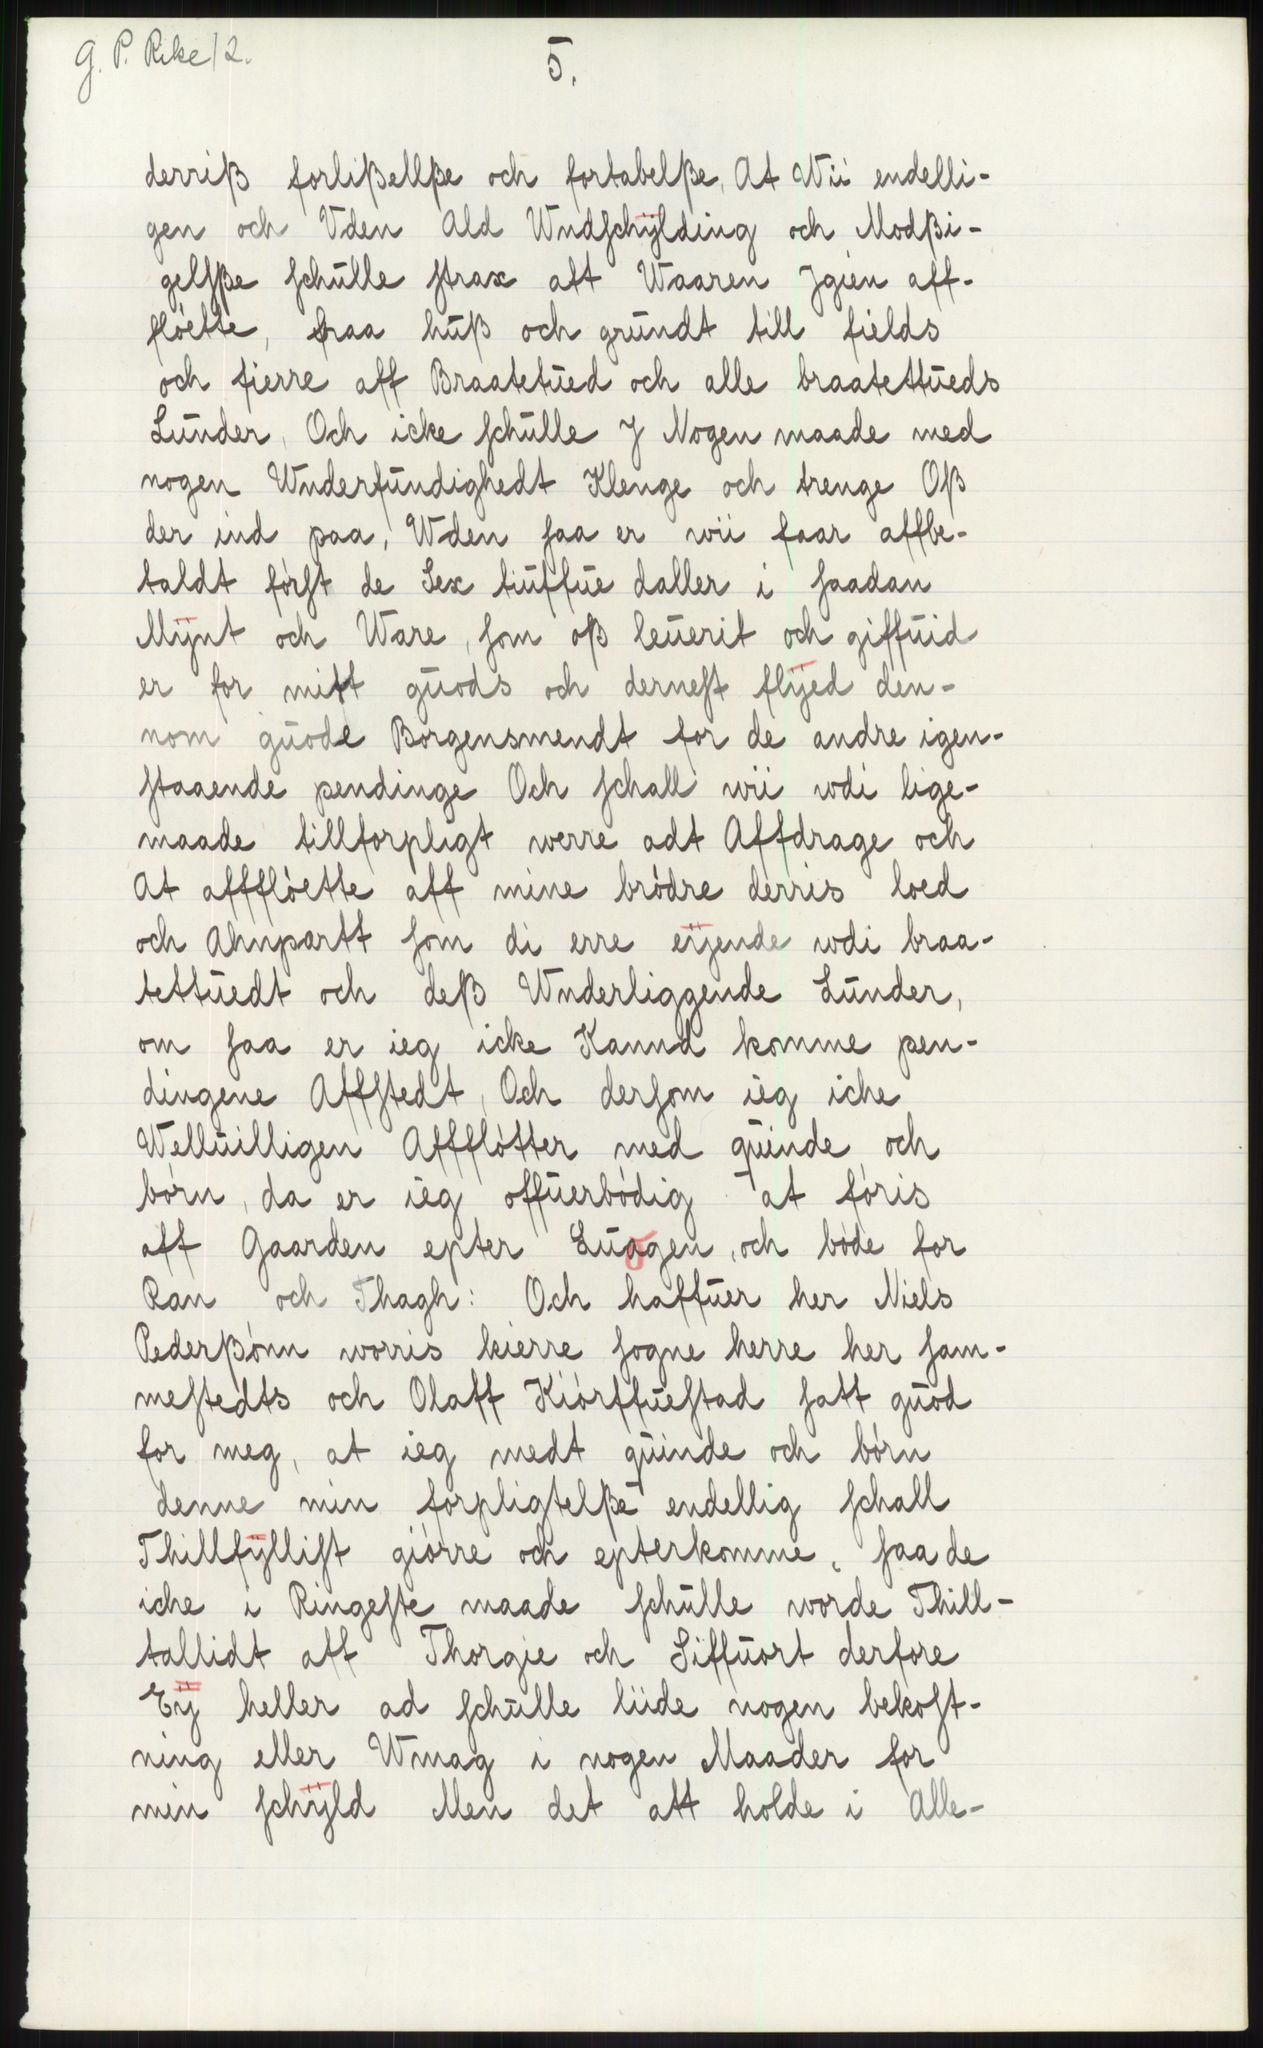 G. P. Rike/2.
5.
derriß forlißellße och fortabelße, At Wii endelli-
gen och Vden Ald Wndſchÿlding och Modßi-
gelſße ſchulle ſtrax aff Waaren Jgien aff-
flóette, fraa huß och grundt till fields
och fierre aff Braatetued och alle braatettueds
Lunder, Och icke ſchulle J Nogen maade med
nogen Wnderfundighedt Klenge och trenge Oß
der ind paa, Wden ſaa er wii faar affbe-
taldt fórſt de Sex tiuffue daller i ſaadan
Mÿnt och Ware, ſom oß leuerit och giffuid
er for mitt guods och derneſt flÿed den-
nom guode Borgensmendt for de andre igen-
ſtaaende pendinge Och ſchall wii wdi lige-
maade tillforpligt werre adt Affdrage och
At affflóette aff mine bródre derris loed
och Ahnpartt ſom di erre eÿende wdi braa-
tettuedt och deß Wnderliggende Lunder,
om ſaa er ieg icke Kannd komme pen-
dingene Affſtedt, Och derſom ieg iche
Welluilligen Affflótter med quinde och
bórn, da er ieg offuerbódig at fóris
aff Gaarden epter Luogen, och bóde for
Ran och Thagh: Och haffuer her Niels
Pederßónn worris kierre ſogne herre her ſam-
meſtedts och Olaff Kiórffueſtad ſatt guod
for meg, at ieg medt quinde och bórn
denne min forpligtelße endellig ſchall
Thillfÿlliſt giórre och epterkomme, ſaa de
iche i Ringeſte maade ſchulle worde Thill-
tallidt aff Thorgie och Siffuort derfore
Eÿ heller ad ſchulle liide nogen bekoſt-
ning eller Wmag i nogen Maader for
min ſchÿld Men det att holde i Alle-